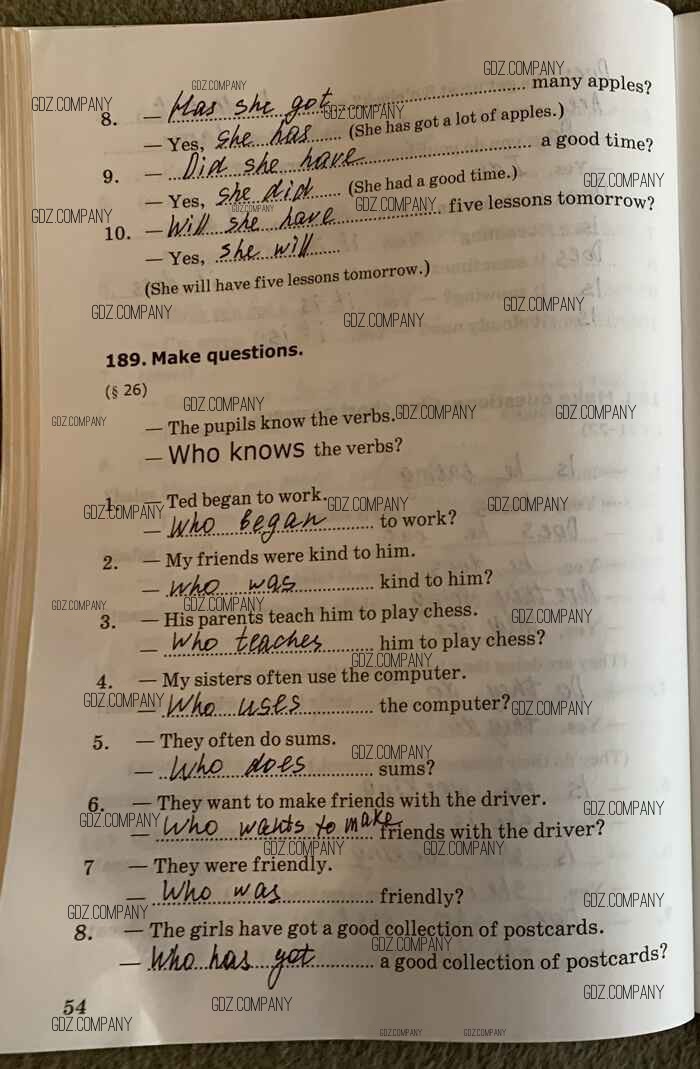 8. — Has she got many apples?
— Yes, she has (She has got a lot of apples.)
9. — Did she have a good time?
— Yes, she did (She had a good time.)
10. — Will she have five lessons tomorrow?
— Yes, she will
(She will have five lessons tomorrow.)
189. Make questions.
(§ 26)
— The pupils know the verbs.
— Who knows the verbs?
1. — Ted began to work.
— Who began to work?
2. — My friends were kind to him.
— Who was kind to him?
3. — His parents teach him to play chess.
— Who teaches him to play chess?
4. — My sisters often use the computer.
— Who uses the computer?
5. — They often do sums.
— Who does sums?
6. — They want to make friends with the driver.
— Who wants to make friends with the driver?
7 — They were friendly.
— Who was friendly?
8. — The girls have got a good collection of postcards.
— Who has got a good collection of postcards?
54
GDZ.COMPANY